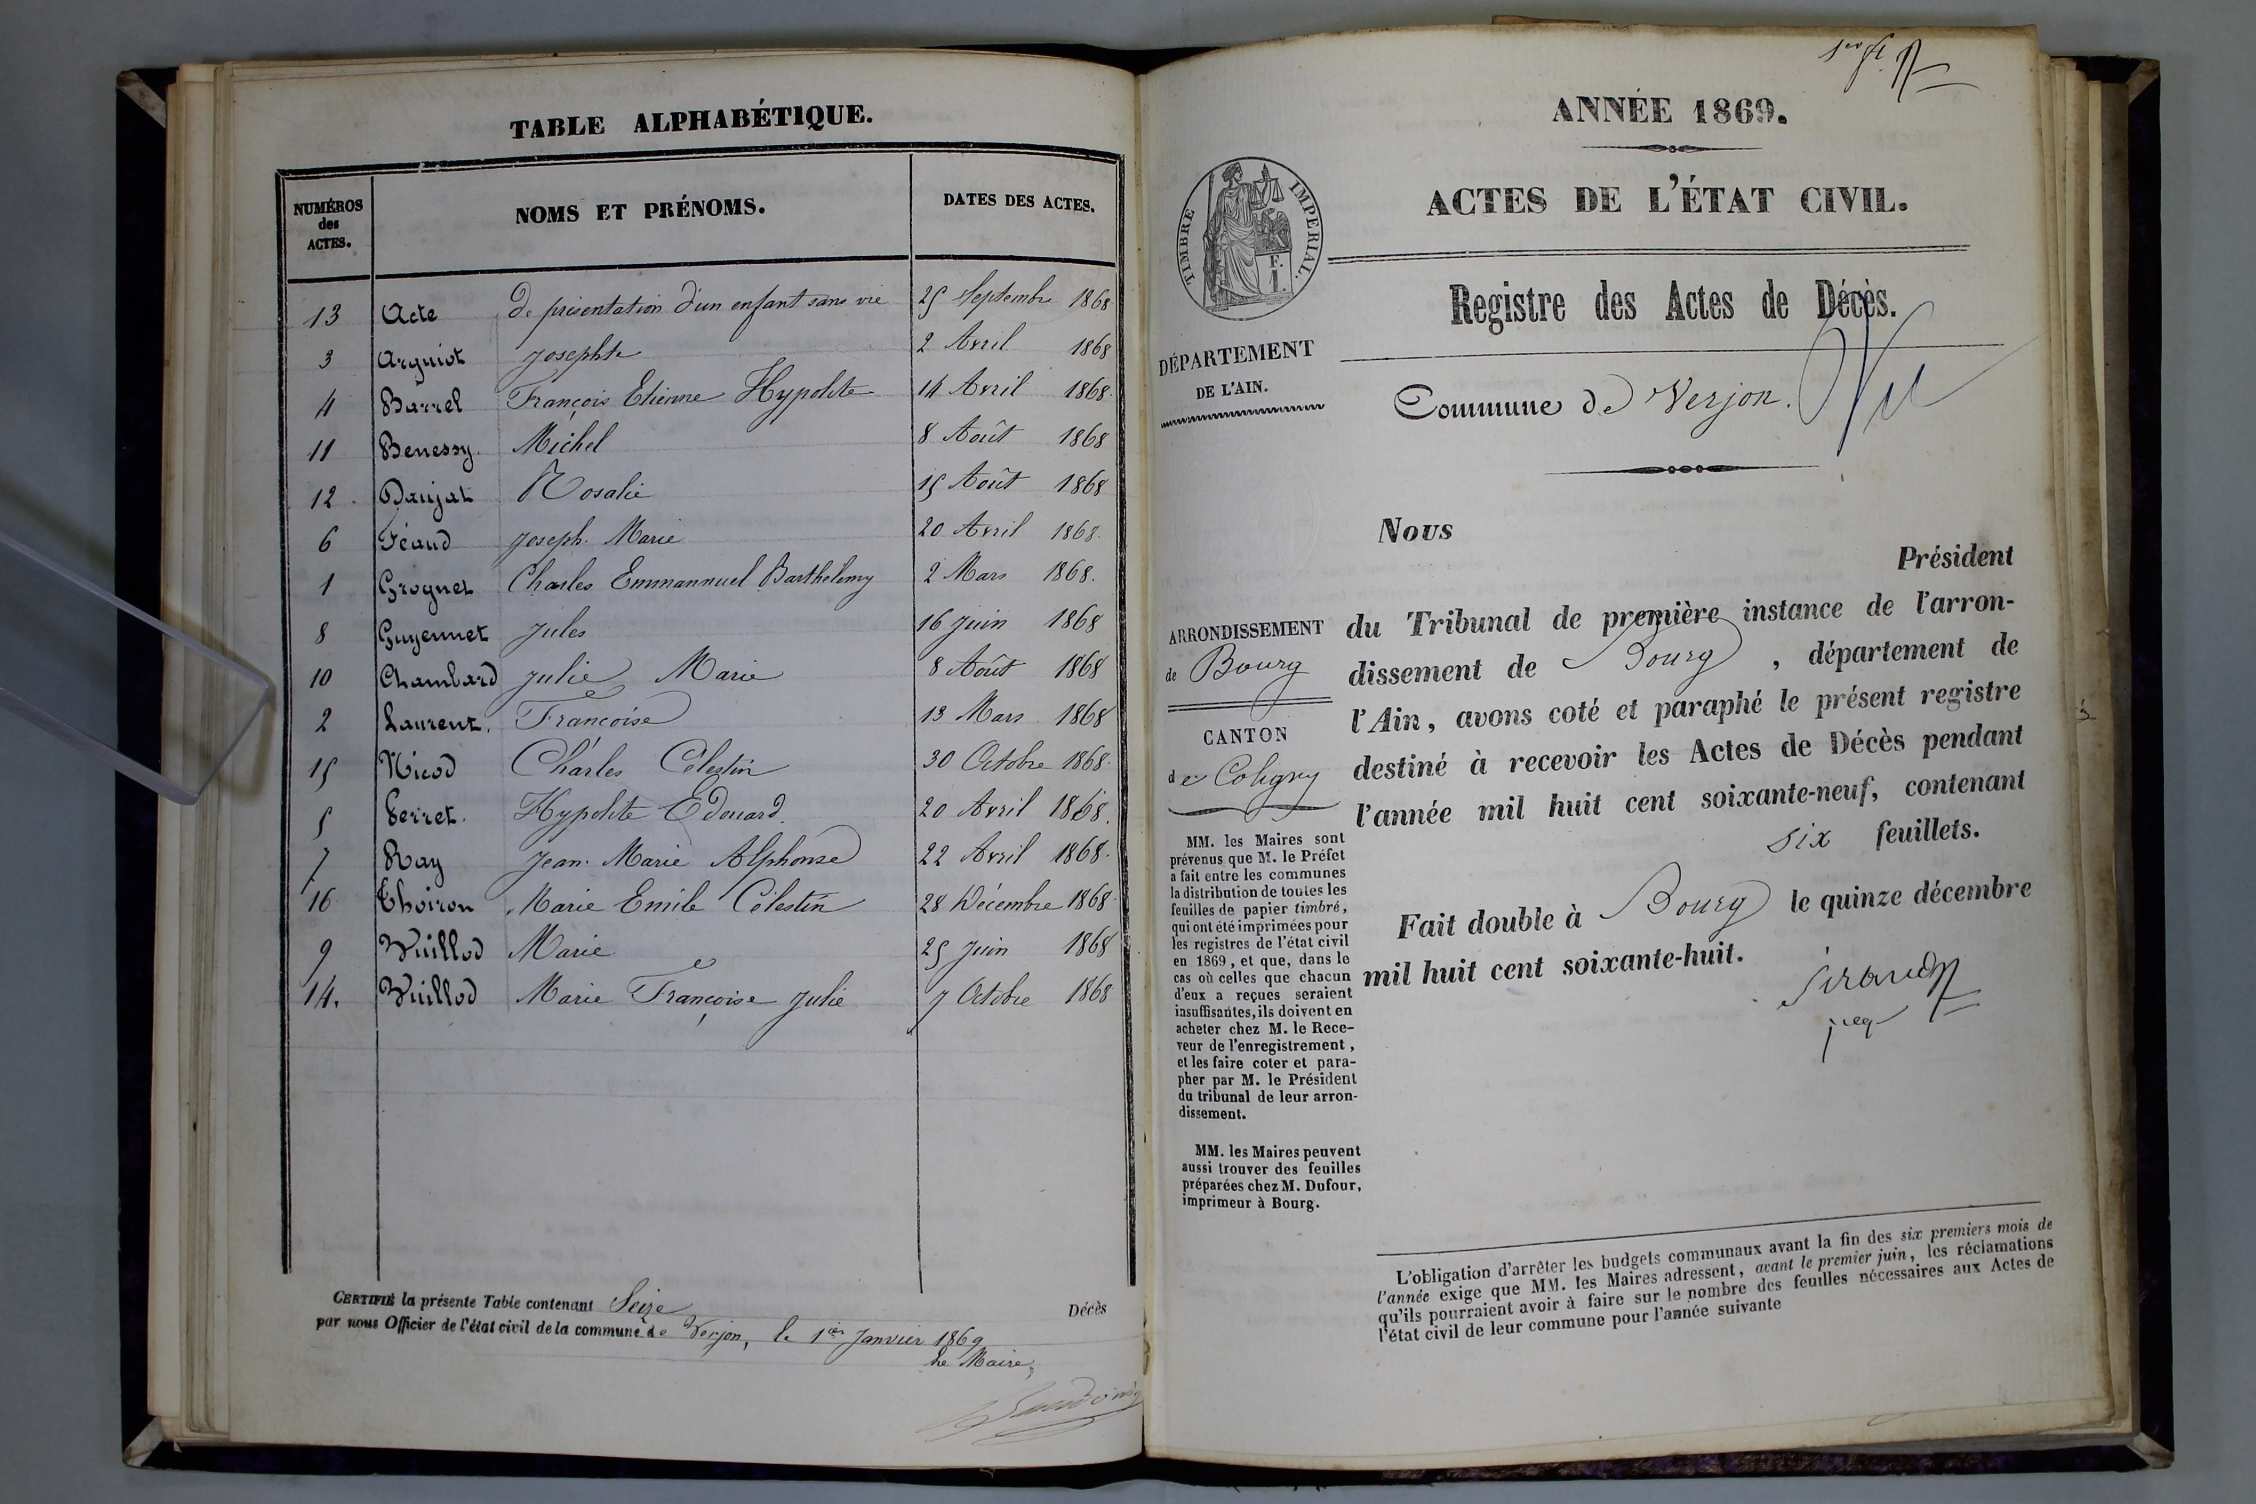 TABLE ALPHABÉTIQUE.
NUMÉROS des ACTES. NOMS ET PRÉNOMS. DATES DES ACTES.
13 Acte de présentation d'un enfant sans vie 25 Septembre 1868
3 Arguiot Josephte 2 Avril 1868
4 Barrel François Etienne Hypolite 14 Avril 1868.
11 Benessy. Michel 8 Août 1868
12 Danjat Rosalie 15 Août 1868
6 Féaud Joseph. Marie 20 Avril 1868.
1 Grognet Charles Emmannuel Barthelemy 2 Mars 1868.
8 Guyennet Jules 16 Juin 1868
10 Chambard Julie Marie 8 Août 1868
2 Laurent. Françoise 13 Mars 1868
15 Nicod Charles Célestin 30 Octobre 1868.
5 Perret. Hypolite Edouard. 20 Avril 1868.
7 Ray Jean. Marie Alphonse 22 Avril 1868.
16 Thoiron Marie Emile Célestin 28 Décembre 1868
9 Vuillod Marie 25 Juin 1868
14. Vuillod Marie Françoise Julie 7 Octobre 1868
CERTIFIÉ la présente Table contenant Seize Décès
par nous Officier de l'état civil de la commune de Verjon, le 1er Janvier 1869
Le Maire,
ANNÉE 1869.
ACTES DE L'ÉTAT CIVIL.
TIMBRE IMPERIAL.
F.
1.
Registre des Actes de Décès.
DÉPARTEMENT
DE L'AIN.
Commune de Verjon.
Vu
Nous
Président
ARRONDISSEMENT
de Bourg
CANTON
de Coligny
du Tribunal de première instance de l'arron-
dissement de Bourg, département de
l'Ain, avons coté et paraphé le présent registre
destiné à recevoir les Actes de Décès pendant
l'année mil huit cent soixante-neuf, contenant
six feuillets.
Fait double à Bourg le quinze décembre
mil huit cent soixante-huit.
MM. les Maires sont
prévenus que M. le Préfet
a fait entre les communes
la distribution de toutes les
feuilles de papier timbré,
qui ont été imprimées pour
les registres de l'état civil
en 1869, et que, dans le
cas où celles que chacun
d'eux a reçues seraient
insuffisantes, ils doivent en
acheter chez M. le Rece-
veur de l'enregistrement,
et les faire coter et para-
pher par M. le Président
du tribunal de leur arron-
dissement.
MM. les Maires peuvent
aussi trouver des feuilles
préparées chez M. Dufour,
imprimeur à Bourg.
L'obligation d'arrêter les budgets communaux avant la fin des six premiers mois de
l'année exige que MM. les Maires adressent, avant le premier juin, les réclamations
qu'ils pourraient avoir à faire sur le nombre des feuilles nécessaires aux Actes de
l'état civil de leur commune pour l'année suivante